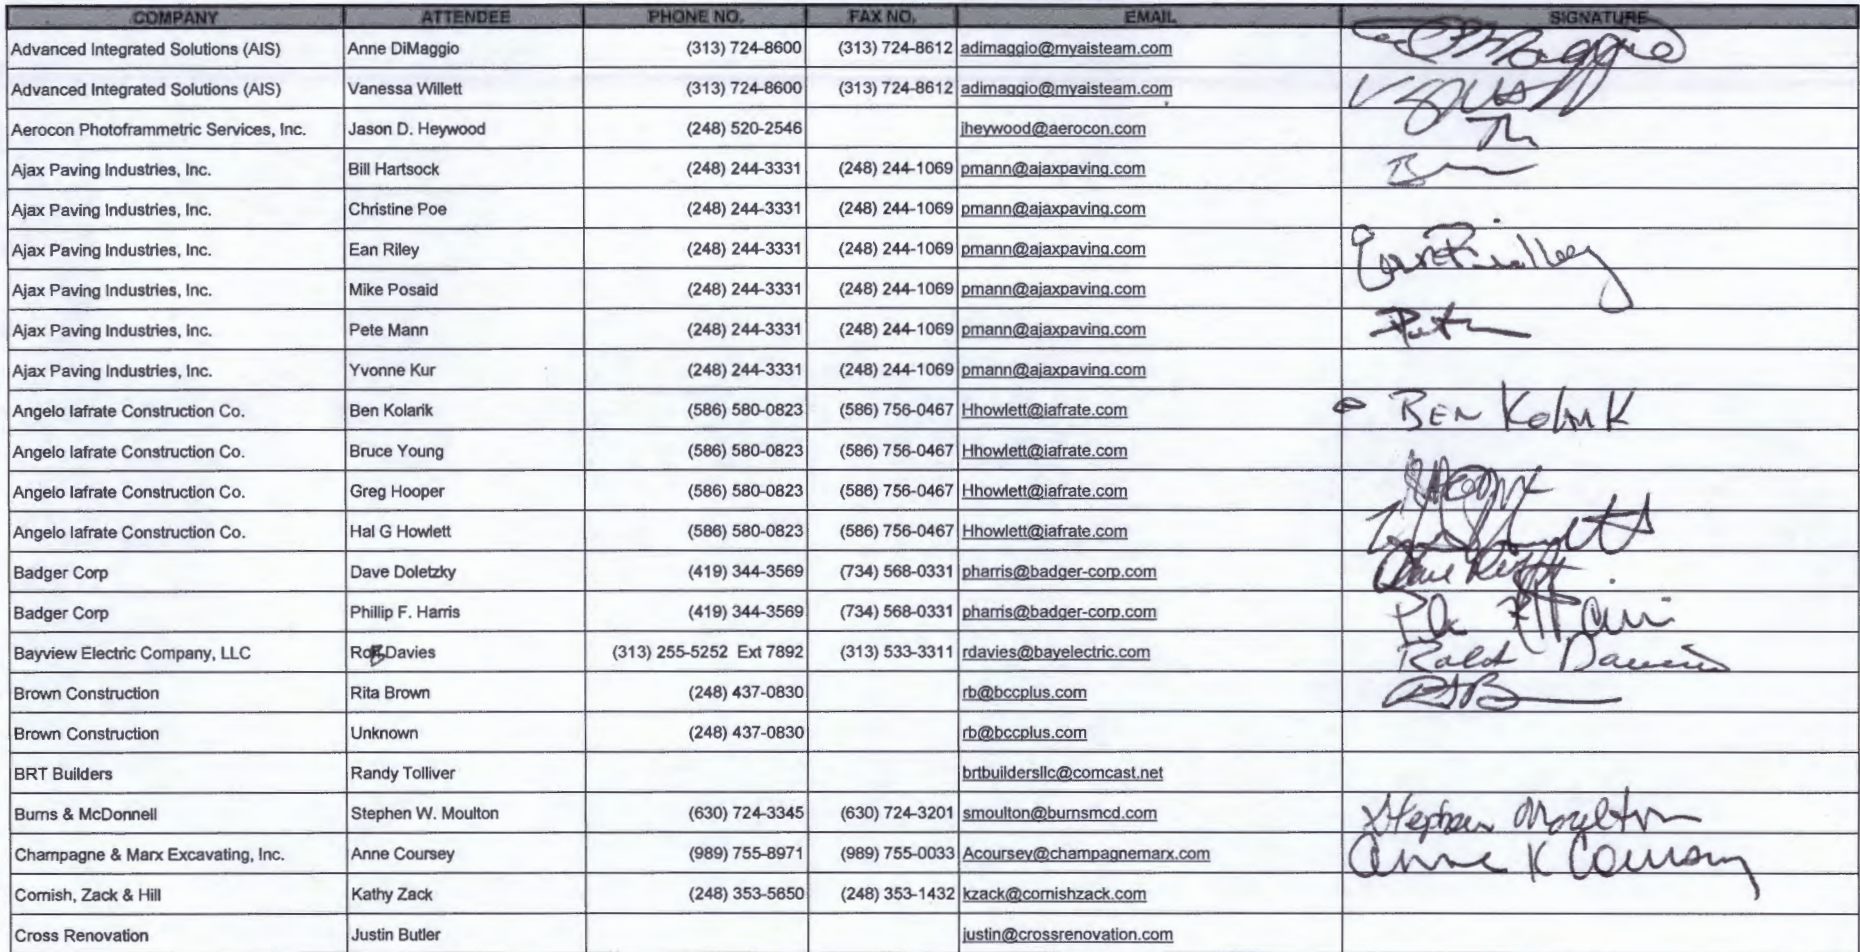 COMPANY ATTENDEE PHONE NO. FAX NO. EMAIL SIGNATURE
Advanced Integrated Solutions (AIS) Anne DiMaggio (313) 724-8600 (313) 724-8612 adimaggio@myaisteam.com
Advanced Integrated Solutions (AIS) Vanessa Willett (313) 724-8600 (313) 724-8612 adimaggio@myaisteam.com
Aerocon Photoframmetric Services, Inc. Jason D. Heywood (248) 520-2546 jheywood@aerocon.com
Ajax Paving Industries, Inc. Bill Hartsock (248) 244-3331 (248) 244-1069 pmann@ajaxpaving.com
Ajax Paving Industries, Inc. Christine Poe (248) 244-3331 (248) 244-1069 pmann@ajaxpaving.com
Ajax Paving Industries, Inc. Ean Riley (248) 244-3331 (248) 244-1069 pmann@ajaxpaving.com
Ajax Paving Industries, Inc. Mike Posaid (248) 244-3331 (248) 244-1069 pmann@ajaxpaving.com
Ajax Paving Industries, Inc. Pete Mann (248) 244-3331 (248) 244-1069 pmann@ajaxpaving.com
Ajax Paving Industries, Inc. Yvonne Kur (248) 244-3331 (248) 244-1069 pmann@ajaxpaving.com
Angelo Iafrate Construction Co. Ben Kolarik (586) 580-0823 (586) 756-0467 Hhowlett@iafrate.com BEN Kolarik
Angelo Iafrate Construction Co. Bruce Young (586) 580-0823 (586) 756-0467 Hhowlett@iafrate.com
Angelo Iafrate Construction Co. Greg Hooper (586) 580-0823 (586) 756-0467 Hhowlett@iafrate.com
Angelo Iafrate Construction Co. Hal G Howlett (586) 580-0823 (586) 756-0467 Hhowlett@iafrate.com
Badger Corp Dave Doletzky (419) 344-3569 (734) 568-0331 pharris@badger-corp.com
Badger Corp Phillip F. Harris (419) 344-3569 (734) 568-0331 pharris@badger-corp.com
Bayview Electric Company, LLC Rob Davies (313) 255-5252 Ext 7892 (313) 533-3311 rdavies@bayelectric.com
Brown Construction Rita Brown (248) 437-0830 rb@bccplus.com
Brown Construction Unknown (248) 437-0830 rb@bccplus.com
BRT Builders Randy Tolliver brtbuildersllc@comcast.net
Burns & McDonnell Stephen W. Moulton (630) 724-3345 (630) 724-3201 smoulton@burnsmcd.com Stephen Moulton
Champagne & Marx Excavating, Inc. Anne Coursey (989) 755-8971 (989) 755-0033 Acoursey@champagnemarx.com Anne K Coursey
Cornish, Zack & Hill Kathy Zack (248) 353-5650 (248) 353-1432 kzack@cornishzack.com
Cross Renovation Justin Butler justin@crossrenovation.com